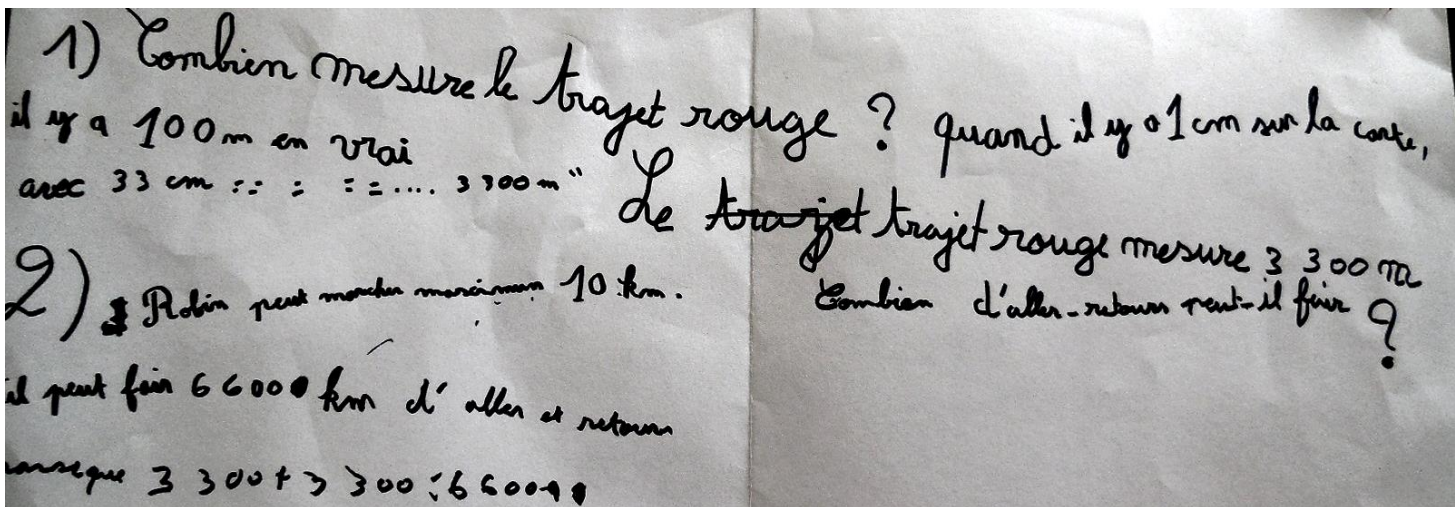 1) Combien mesure le trajet rouge ? quand il y a 1 cm sur la carte,
il y a 100 m en vrai
avec 33 cm :: : :=.... 3 300 m" Le trajet trajet rouge mesure 3 300 m
2) Robin peut marcher maximum 10 km. Combien d'aller-retours peut-il fair ?
il peut fair 6600 km d'aller et retours
3 300 + 3 300 : 6600